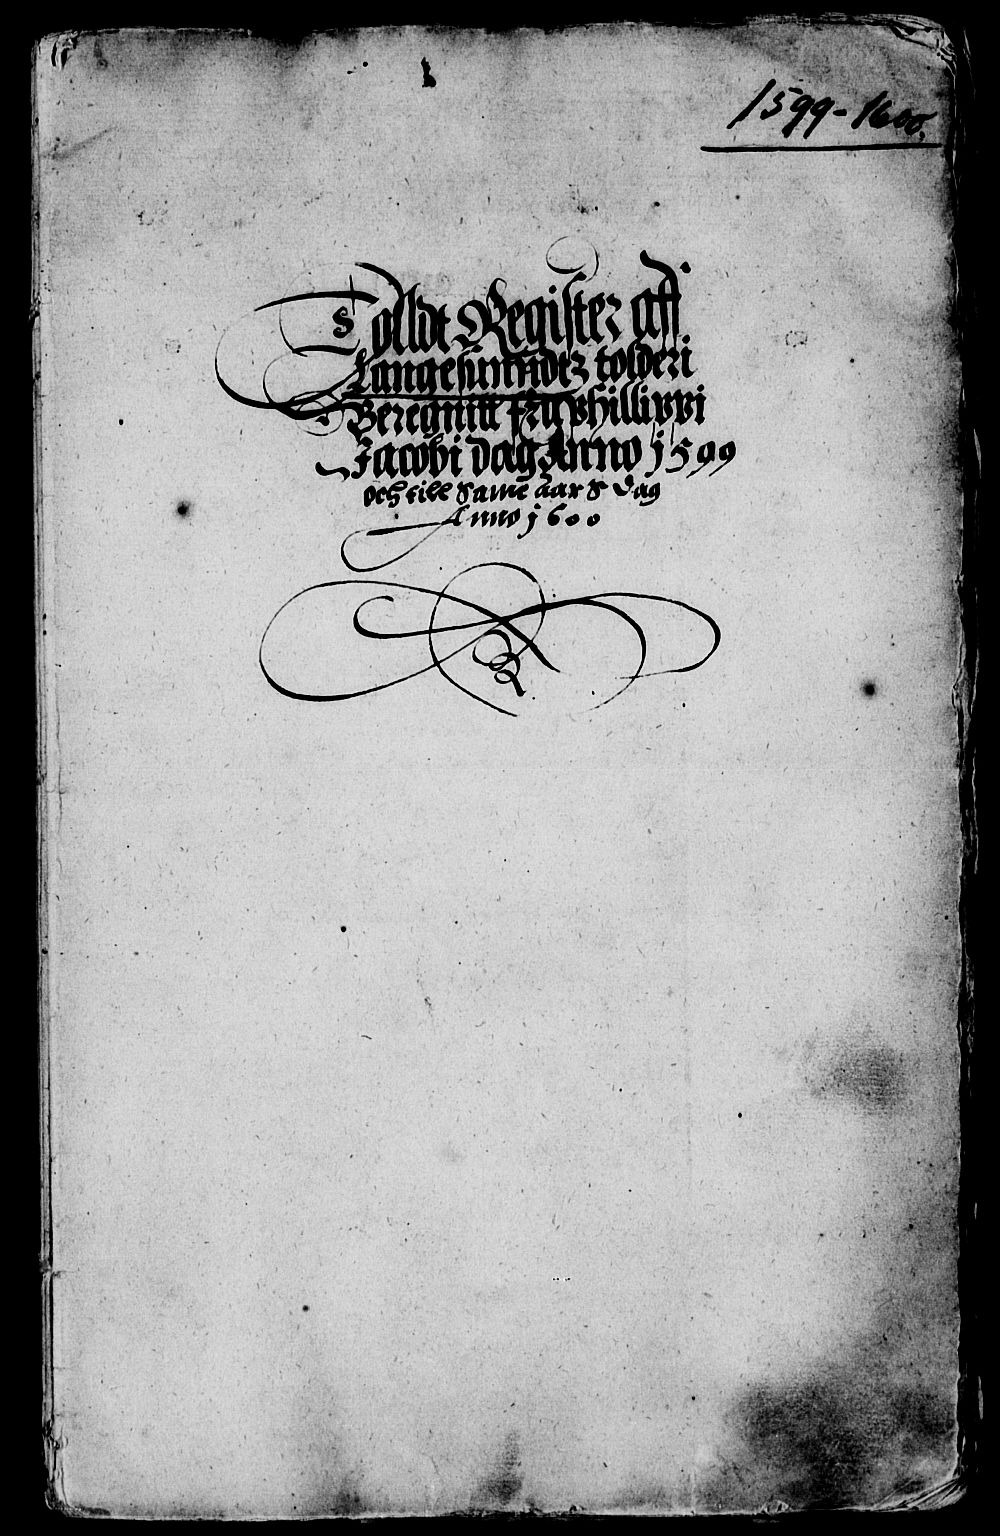 1599-1600.
Tolldt Register aff
Langesunndtz tolderi
Beregnitt fra Phillippi
Jacobi dag Anno 1599
och till same aars Dag
Anno 1600